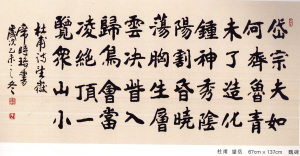 岱宗夫如
何齊魯青
未了造化
鍾神秀陰
陽割昏曉
蕩胸生層
雲決眥入
歸鳥會當
凌絕頂一
覽眾山小
杜甫詩望嶽
乙未之冬
書
杜甫 望岳 67cm x 137cm 魏碑